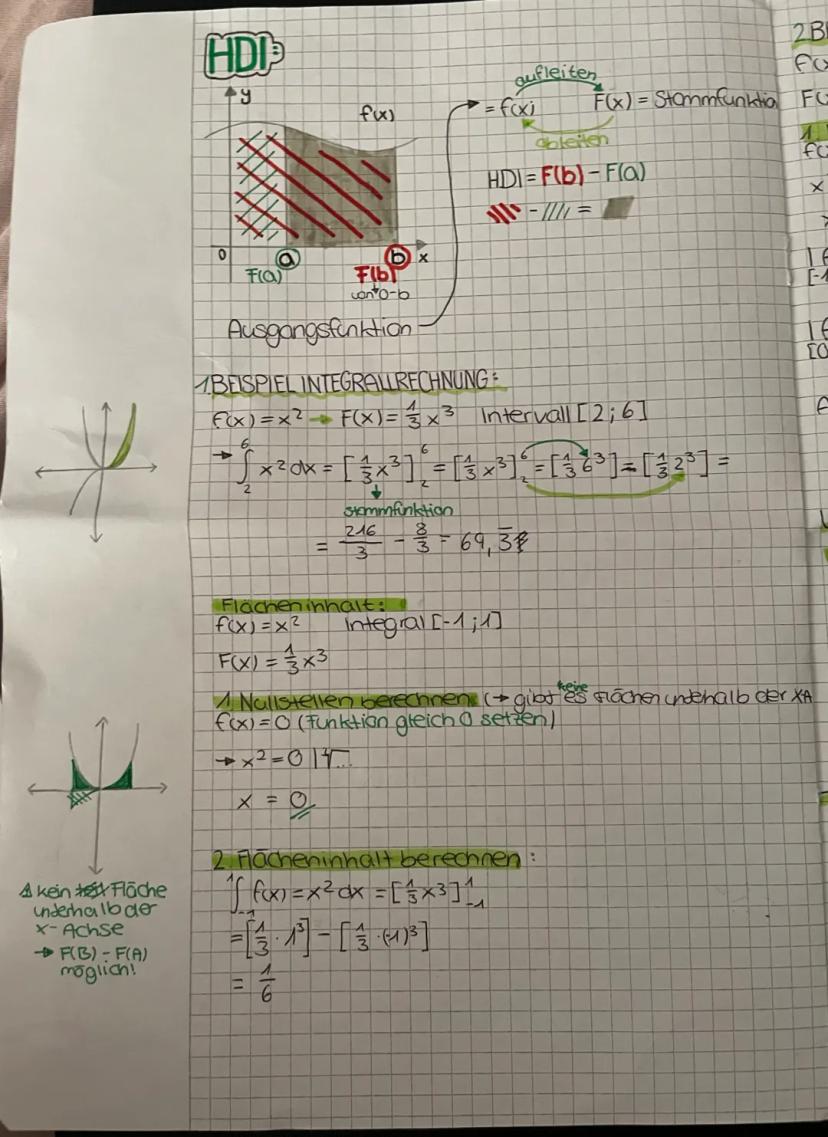 HDI
y
f(x)
0
a
b
x
F(a)
F(b)
von 0-b
Ausgangsfunktion
aufleiten
= f(x) F(x) = Stammfunktion
ableiten
HDI = F(b) - F(a)
- =
1. BEISPIEL INTEGRALLRECHNUNG:
f(x) = x² → F(x) = 1/3 x³ Intervall [2;6]
→ ∫₂⁶ x² dx = [1/3 x³]₂⁶ = [1/3 x³]₂⁶ = [1/3 6³] = [1/3 2³] =
stammfunktion
= 216/3 - 8/3 = 69,3̅
Flächeninhalt:
f(x) = x² Integral [-1;1]
F(x) = 1/3 x³
1. Nullstellen berechnen (→ gibt es keine Flächen underhalb der XA
f(x) = 0 (Funktion gleich 0 setzen)
→ x² = 0 | √...
x = 0
2. Flächeninhalt berechnen:
∫₋₁¹ f(x) = x² dx = [1/3 x³]₋₁¹
= [1/3 · 1³] - [1/3 · (-1)³]
= 1/6
kein Fläche
underhalb der
x-Achse
→ F(B) - F(A)
möglich!
2.B
f(x
F(
1
f(
x
[-1
[0